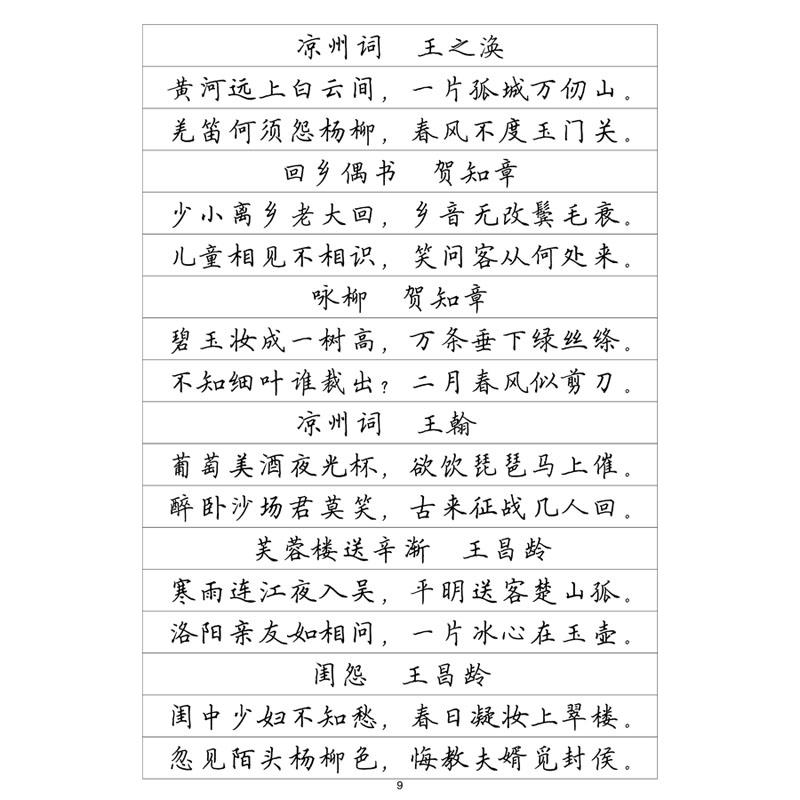 凉州词 王之涣
黄河远上白云间，一片孤城万仞山。
羌笛何须怨杨柳，春风不度玉门关。
回乡偶书 贺知章
少小离乡老大回，乡音无改鬓毛衰。
儿童相见不相识，笑问客从何处来。
咏柳 贺知章
碧玉妆成一树高，万条垂下绿丝绦。
不知细叶谁裁出？二月春风似剪刀。
凉州词 王翰
葡萄美酒夜光杯，欲饮琵琶马上催。
醉卧沙场君莫笑，古来征战几人回。
芙蓉楼送辛渐 王昌龄
寒雨连江夜入吴，平明送客楚山孤。
洛阳亲友如相问，一片冰心在玉壶。
闺怨 王昌龄
闺中少妇不知愁，春日凝妆上翠楼。
忽见陌头杨柳色，悔教夫婿觅封侯。
9